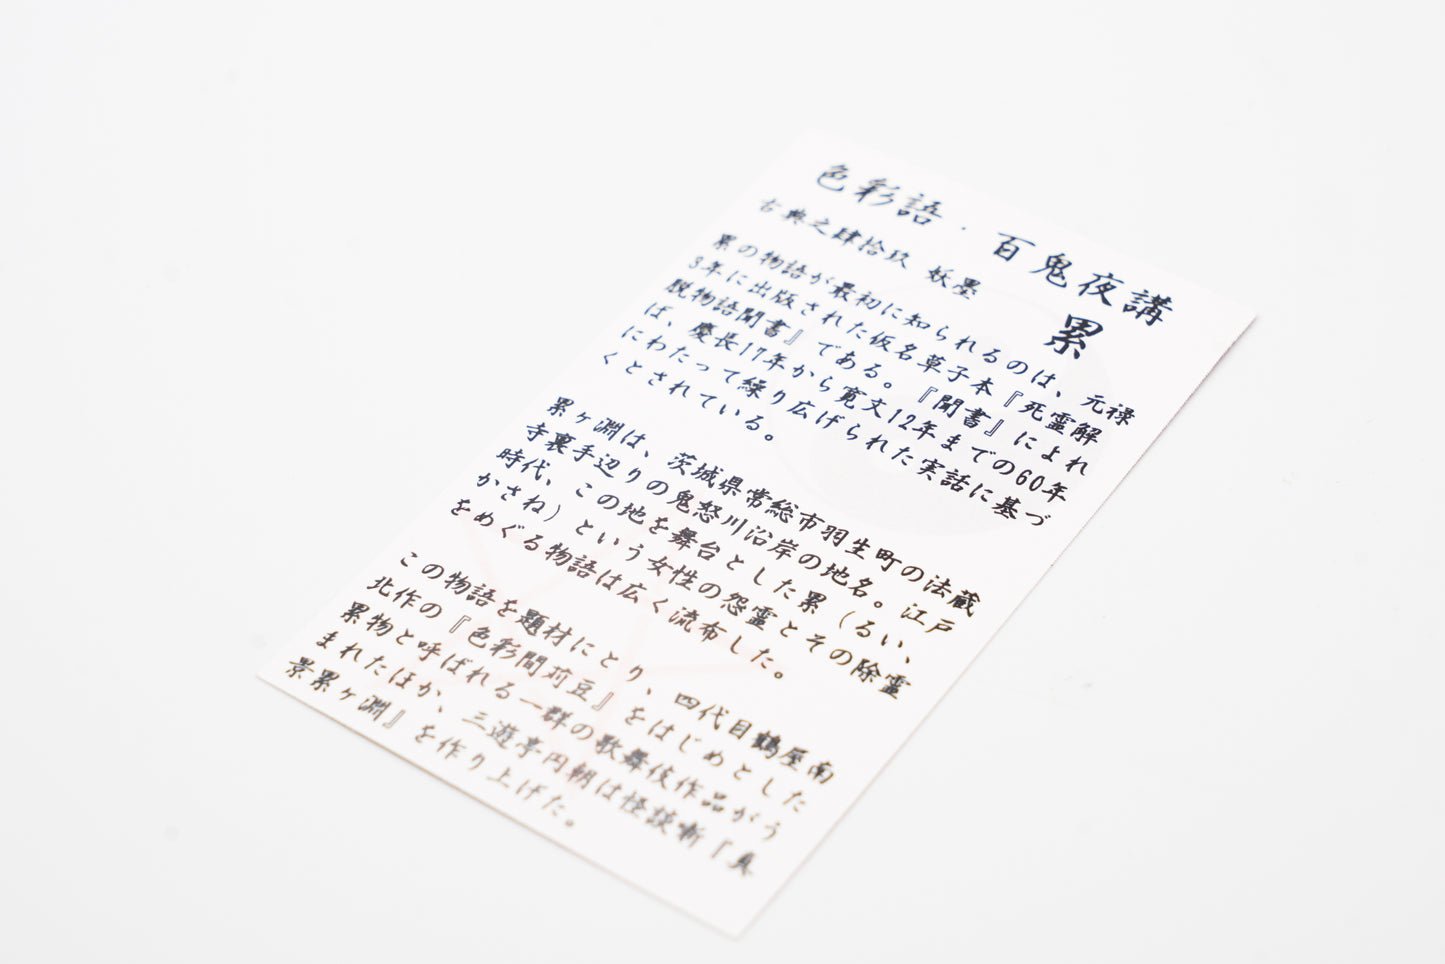 色彩語・百鬼夜講
古典之肆拾玖 妖墨
累
累の物語が最初に知られるのは、元禄
3年に出版された仮名草子本『死霊解
脱物語聞書』である。『聞書』によれ
ば、慶長17年から寛文12年までの60年
にわたって繰り広げられた実話に基づ
くとされている。
累ヶ淵は、茨城県常総市羽生町の法蔵
寺裏手辺りの鬼怒川沿岸の地名。江戸
時代、この地を舞台とした累（るい、
かさね）という女性の怨霊とその除霊
をめぐる物語は広く流布した。
この物語を題材にとり、四代目鶴屋南
北作の『色彩間苅豆』をはじめとした
累物と呼ばれる一群の歌舞伎作品がう
まれたほか、三遊亭円朝は怪談噺『真
景累ヶ淵』を作り上げた。